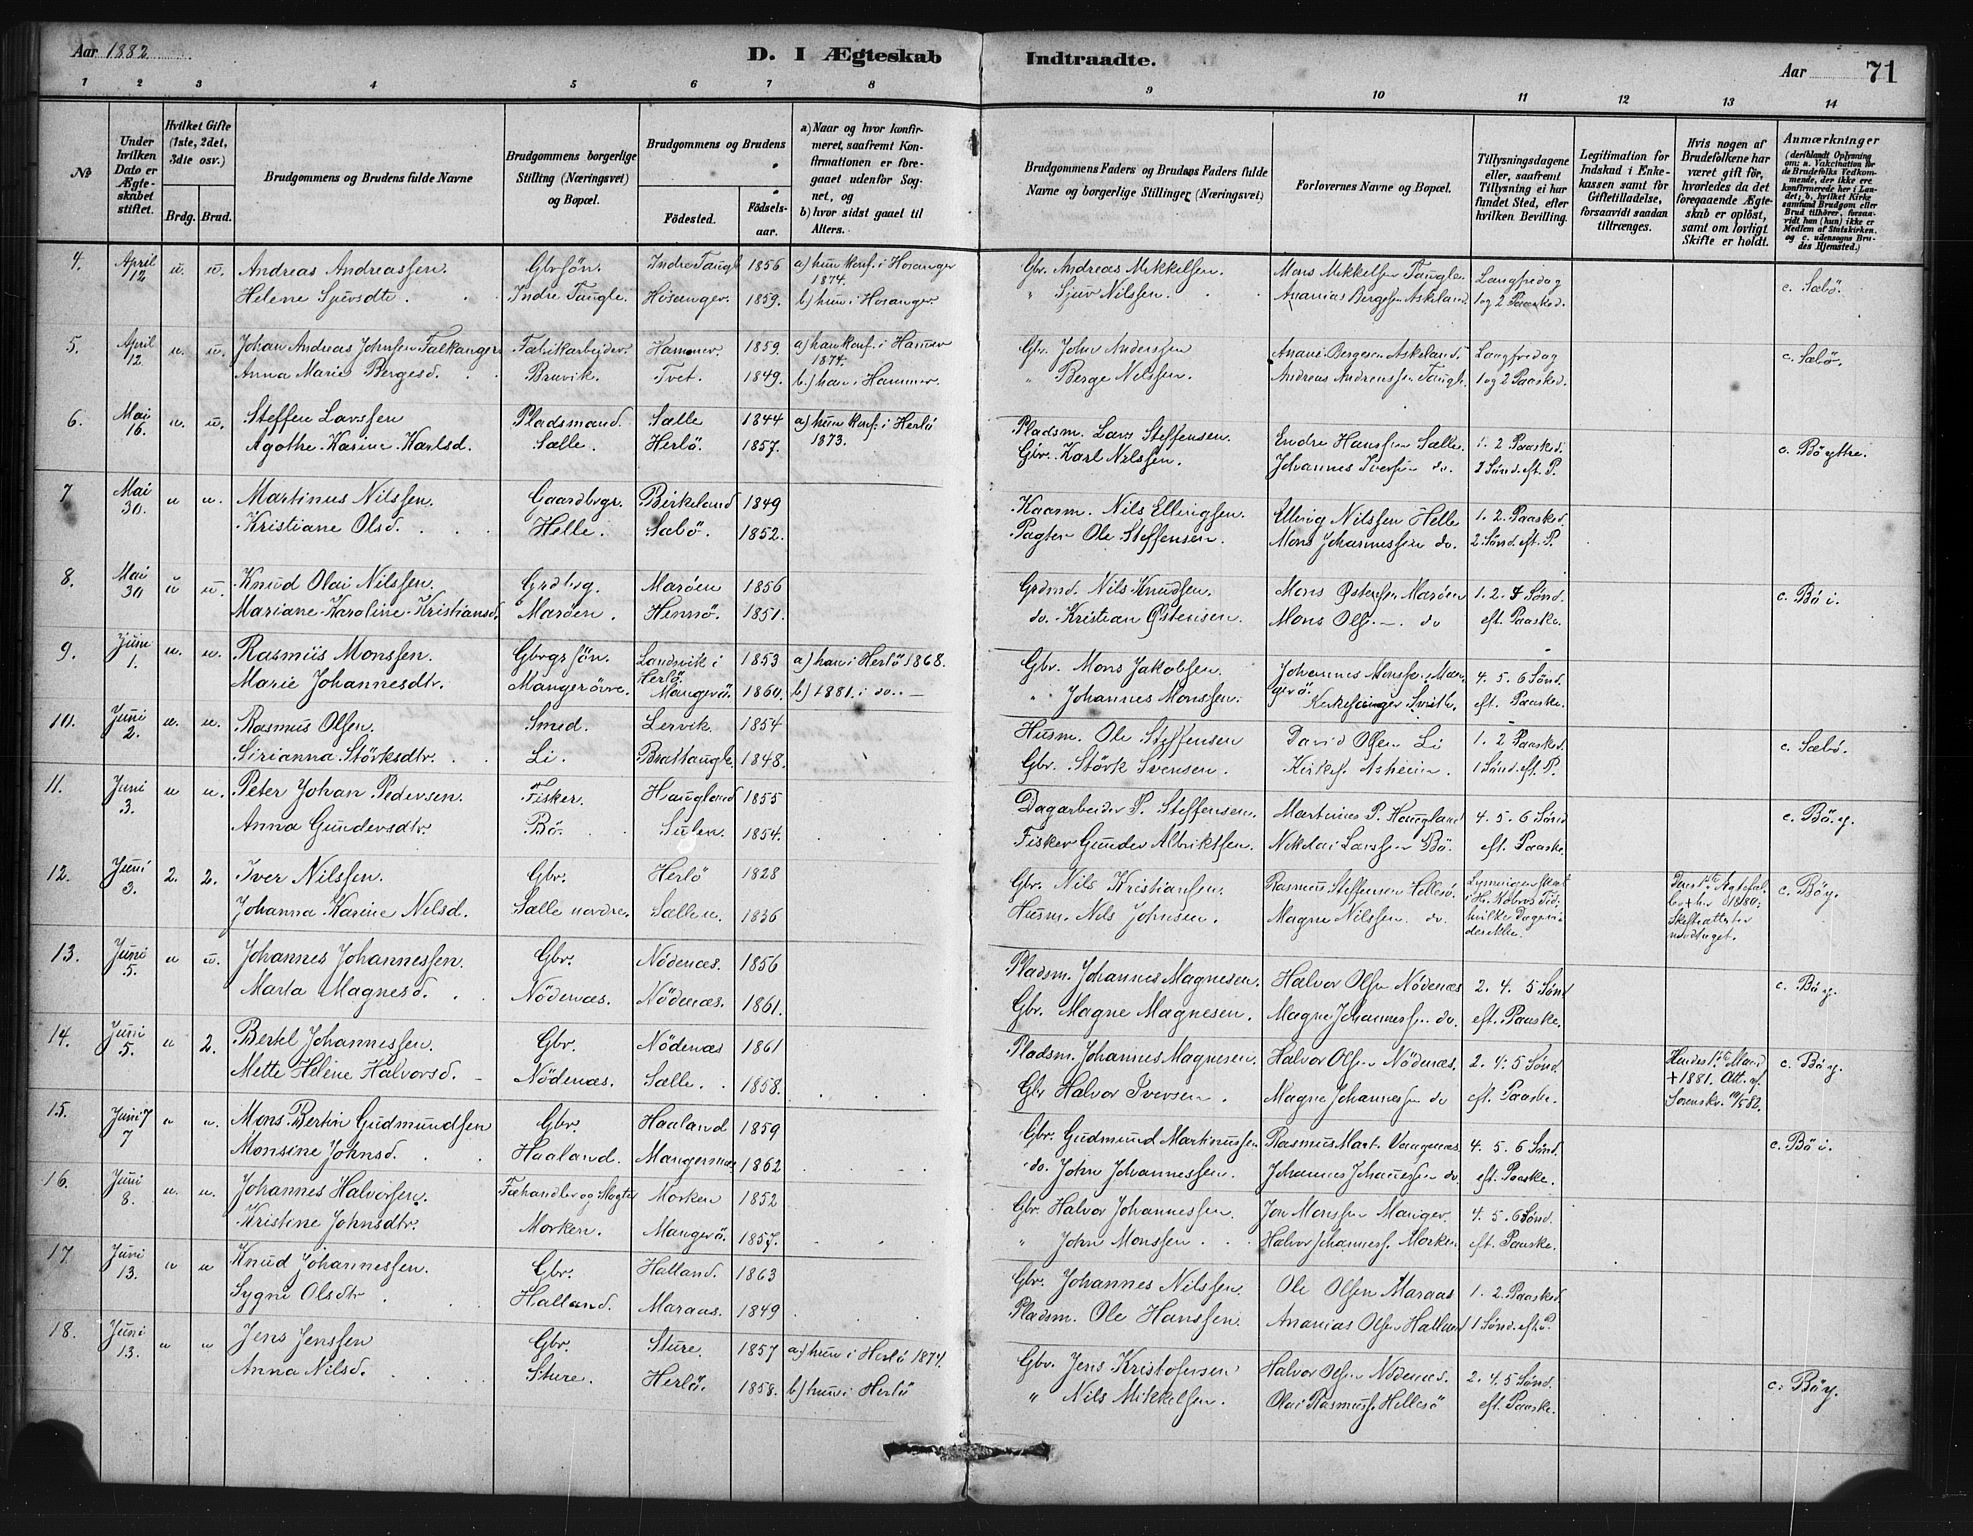 Aar 1882
D. I Ægteskab Indtraadte.
Aar 71
1 2 3 4 5 6 7 8 9 10 11 12 13 14
No
Under hvilken Dato er Ægteskabet stiftet.
Hvilket Gifte (1ste, 2det, 3die osv.)
Brdg. Brud.
Brudgommens og Brudens fulde Navne
Brudgommens borgerlige Stilling (Næringsvei) og Bopæl.
Brudgommens og Brudens
Födested. Födsels-aar.
a) Naar og hvor konfirmeret, saafremt Konfirmationen er foregaaet udenfor Sognet, og
b) hvor sidst gaaet til Alters.
Brudgommens Faders og Brudens Faders fulde Navne og borgerlige Stillinger (Næringsvei)
Forlovernes Navne og Bopæl.
Tillysningsdagene eller, saafremt Tillysning ei har fundet Sted, efter hvilken Bevilling.
Legitimation for Indskud i Enkekassen samt for Giftetilladelse, forsaavidt saadan tiltrænges.
Hvis nogen af Brudefolkene har været gift för, hvorledes da det foregaaende Ægteskab er oplöst, samt om lovligt Skifte er holdt.
Anmærkninger (deriblandt Oplysning om: a. Vakcination för de Brudefolks Vedkommende, der ikke ere konfirmerede her i Landet; b. hvilket Kirkesamfund Brudgom eller Brud tilhörer, forsaavidt han (hun) ikke er Medlem af Statskirken. og c. udensogns Brudes Hjemsted.)
4. April 12 u. u. Andreas Andreassen. Gbrsön. Indre Taugl 1856 a) hun konf. i Hosanger 1874. Gbr. Andreas Mikkelsen. Mons Mikkelsen Taugle. Langfredag c. Sæbö.
Helene Sjursdtr. Indre Taugle. Hosanger. 1859. b) hun i Hosanger " Sjur Nilssen. Ananias Bergesen Askeland 1 og 2 Paasked.
5. April 12 u. u. Johan Andreas Johnsen Falkanger Fabrikarbejder. Hammer. 1859. a) han konf. i Hamer 1874. Gbr. John Anderssen Anani Bergesen Askeland. Langfredag c. Sæbö.
Anna Marie Bergesd. Bruvik. Tvet. 1849. b.) han i Hammer. " Berge Nilssen. Andreas Andreassen Taugl. 1 og 2 Paasked.
6. Mai 16. u. u. Steffen Larssen Pladsmand. Sælle 1844 a) hun konf. i Herlö 1873. Pladsm. Lars Steffensen. Endre Hanssen Sælle 1. 2. Paasked. c. Böyttre.
Agothe Karine Karlsd. Sælle. Herlö. 1857. Gbr. Karl Nilssen. Johannes Iversen do. 2 Sönd. eft. P.
7 Mai 30. u u. Martinus Nilssen. Gaardbrgr. Birkeland 1849 Kaarm. Nils Ellingsen. Elling Nilssen Helle 1. 2. Paasked.
Kristiane Olsd. Helle. Sæbö. 1852. Pagter Ole Steffensen. Mons Johannessen do. 2. Sönd. eft. P.
8. Mai 30 u u. Knud Olai Nilssen. Grdbrg. Maröen 1856 Grdmd. Nils Knudsen. Mons Östensen Maröen 1. 2. 4 Sönd. c. Bö i.
Mariane Karoline Kristiansd. Maröen. Hennö. 1851. do. Kristian Östensen. Mons Ols. — do eft. Paaske.
9. Juni 1. u. u. Rasmus Monssen. Gbrgrsön. Landsvik i Herlö. 1853 a) han i Herlö 1868. Gbr. Mons Jakobsen. Johannes Monssen, Mangerö. 4. 5. 6 Sönd.
Marie Johannesdtr. Mangeröire. Mangerö. 1860. b) 1881. i do. — " Johannes Monssen. Kirkesanger Smith. eft. Paaske.
10. Juni 2. u. u. Rasmus Olsen. Smed. Lervik. 1854 Husm. Ole Steffensen David Olsen Li 1. 2 Paasked. c. Sæbö.
Sirianna Störksdtr. Li. Brattaugle. 1848. Gbr. Störk Svensen. Kirkes. Asheim. 1 Sönd. eft. P.
11. Juni 3. u u. Peter Johan Pedersen. Fisker. Haugland 1855 Dagarbeider P. Steffensen. Martinus P. Haugland 4. 5. 6 Sönd c. Böy.
Anna Gundersdtr. Bö. Sulen. 1854. Fisker Gunder Albriktsen. Nikolai Larssen Bö. eft. Paaske.
12. Juni 3. 2. 2. Iver Nilssen. Gbr. Herlö 1828 Gbr. Nils Kristiansen. Rasmus Steffensen Hellesö. c. Böy.
Johanna Karine Nilsd. Sælle nordre. Sællen. 1836 Husm. Nils Johnsen. Magne Nilssen do.
13. Juni 5. u u. Johannes Johannessen. Gbr. Nödenæs. 1856 Pladsm. Johannes Magnesen. Halvor Olsen Nödenæs 2. 4. 5 Sönd c. Böy.
Marta Magnesd. Nödenæs. Nödenæs. 1861. Gbr. Magne Magnesen. Magne Johannessen do. eft. Paaske.
14. Juni 5. u 2. Bertel Johannessen. Gbr. Nödenæs 1861 Pladsm. Johannes Magnesen. Halvor Olsen Nödenæs. 2. 4. 5 Sönd. Hendes 1ste Mand c. Böy.
Mette Helene Halvorsd. Nödenæs. Sælle. 1858. Gbr Halvor Iversen. Magne Johannessen do eft. Paaske. + 1881. Att. af Sorenskr. 19/5 82.
15. Juni 7 7 u u. Mons Bertin Gudmundsen Gbr. Haaland 1859 Gbr. Gudmund Martinussen Rasmus Mart. Vaagenæs. 4. 5. 6 Sönd. c. Bö i.
Monsine Johnsd. Haaland. Mangernæs 1862 do. John Johannessen. Johannes Johannessen do eft. Paaske.
16. Juni 8. u. u. Johannes Halvorsen. Fæhandler og Slagter Morken 1852 Gbr. Halvor Johannessen. Jon Monssen Manger. 4. 5. 6 Sönd.
Kristine Johnsdtr. Morken. Mangerö. 1857. " John Monssen. Halvor Johanness. Morken eft. Paaske.
17. Juni 13. u u Knud Johannessen. Gbr. Halland. 1863 Gbr. Johannes Nilssen Ole Olsen Maraas 1. 2. Paasked.
Sygni Olsdtr. Halland. Maraas. 1849 Pladsm. Ole Hanssen. Ananias Olsen Halland 1 Sönd. eft. P.
18. Juni 13. u u Jens Jenssen Gbr. Sture. 1857 a.) hun i Herlö 1874. Gbr. Jens Kristofersen. Halvor Olsen Nödenæs. 2. 4. 5 Sönd. c. Böy.
Anna Nilsd. Sture. Herlö. 1858. b.) hun i Herlö " Nils Mikkelsen. Olai Rasmuss. Hellesö eft. Paaske.